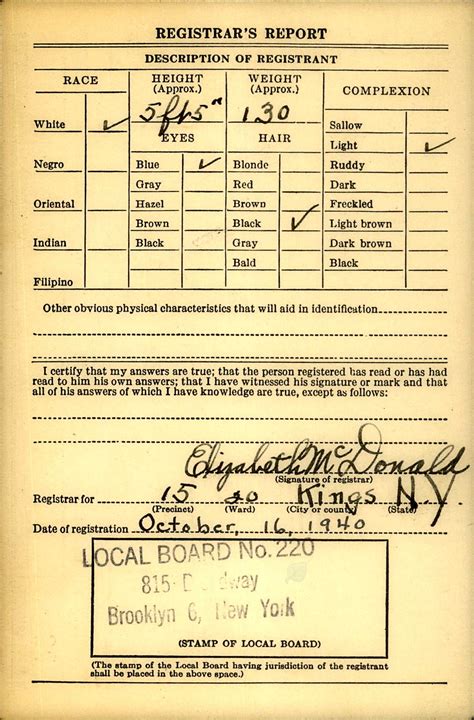 REGISTRAR'S REPORT
DESCRIPTION OF REGISTRANT
RACE
HEIGHT
(Approx.)
WEIGHT
(Approx.)
COMPLEXION
5 ft 5"
130
White ✓
EYES
HAIR
Sallow
Light ✓
Negro
Blue ✓
Blonde
Ruddy
Gray
Red
Dark
Oriental
Hazel
Brown
Freckled
Brown
Black ✓
Light brown
Indian
Black
Gray
Dark brown
Bald
Black
Filipino
Other obvious physical characteristics that will aid in identification
I certify that my answers are true; that the person registered has read or has had
read to him his own answers; that I have witnessed his signature or mark and that
all of his answers of which I have knowledge are true, except as follows:
Elizabeth McDonald
(Signature of registrar)
Registrar for 15 20 Kings N.Y.
(Precinct) (Ward) (City or county) (State)
Date of registration October, 16, 1940
LOCAL BOARD No. 220
815
Brooklyn 6, New York
(STAMP OF LOCAL BOARD)
(The stamp of the Local Board having jurisdiction of the registrant
shall be placed in the above space.)